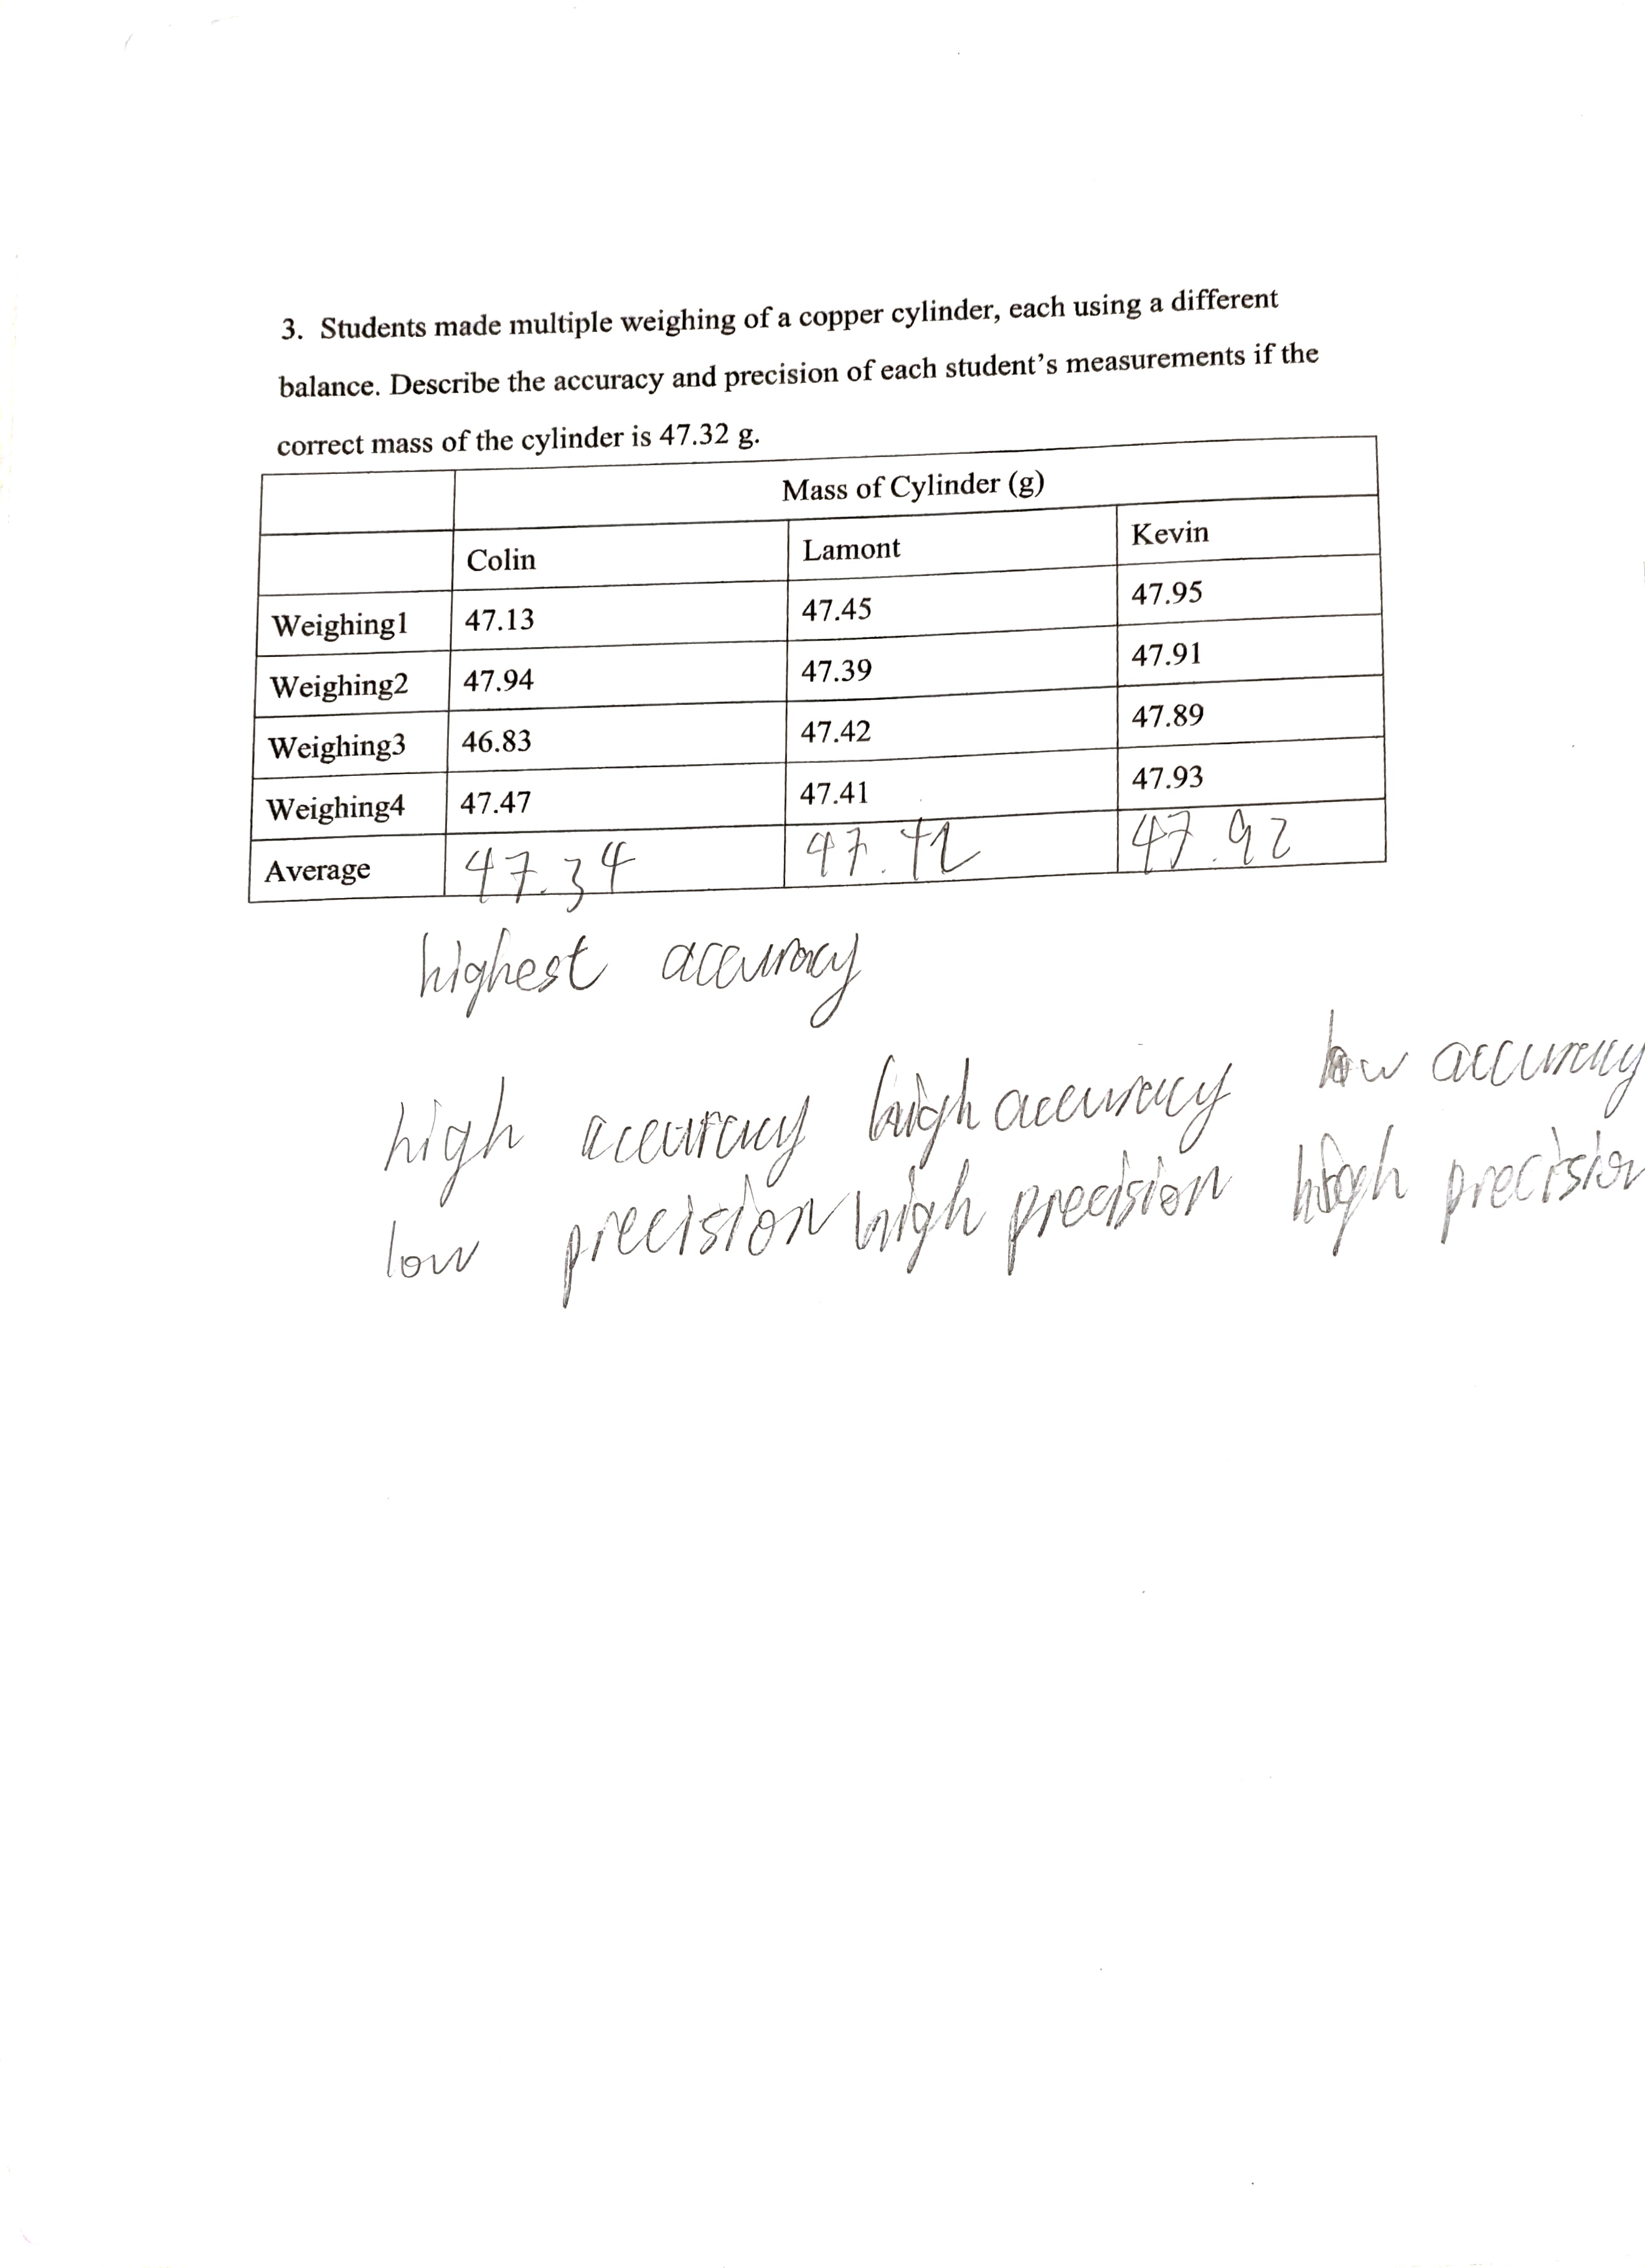 3. Students made multiple weighing of a copper cylinder, each using a different
balance. Describe the accuracy and precision of each student's measurements if the
correct mass of the cylinder is 47.32 g.
Mass of Cylinder (g)
Colin Lamont Kevin
Weighing1 47.13 47.45 47.95
Weighing2 47.94 47.39 47.91
Weighing3 46.83 47.42 47.89
Weighing4 47.47 47.41 47.93
Average 47.34 47.42 47.92
highest accuracy
high accuracy high accuracy low accuracy
low precision high precision high precision